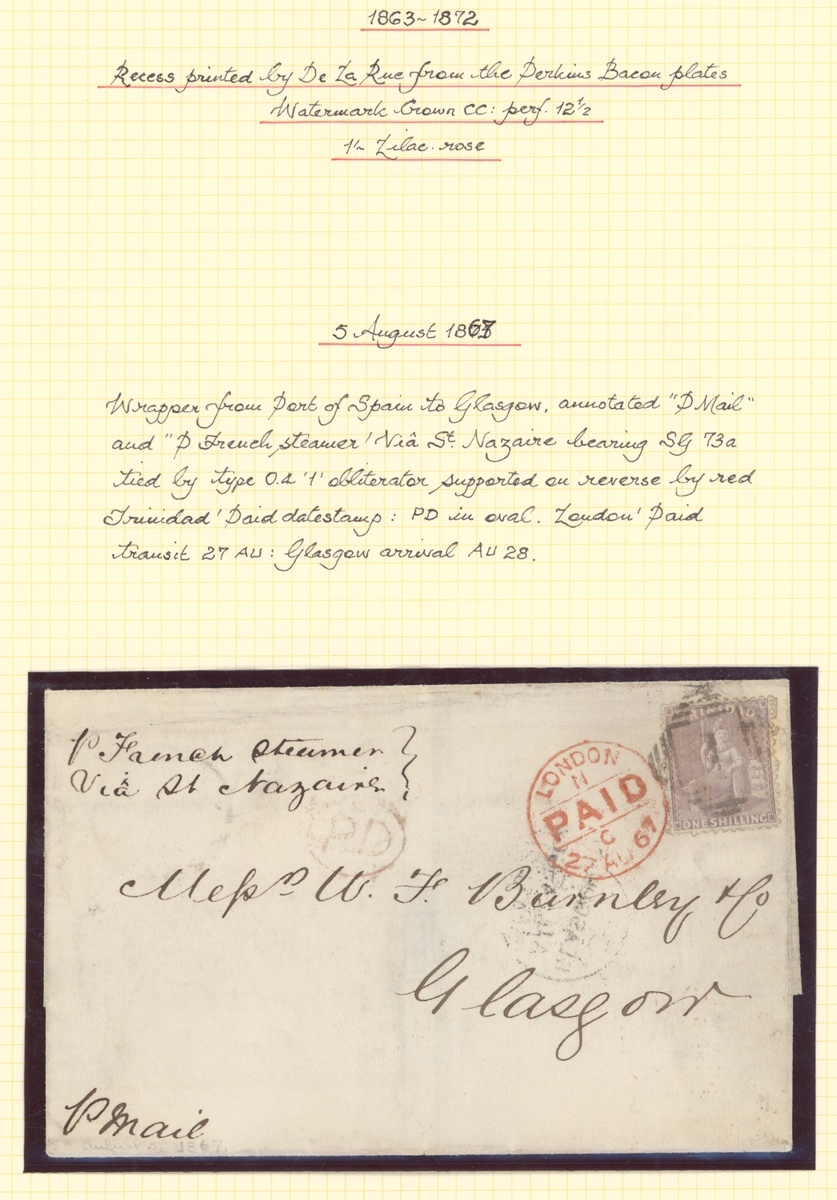 1863~1872
Recess printed by De La Rue from the Perkins Bacon plates
Watermark Crown CC: perf. 12½
1/- Lilac-rose
5 August 1867
Wrapper from Port of Spain to Glasgow, annotated "P Mail"
and "P French steamer' Viâ St. Nazaire bearing SG 73a
tied by type 0.2 '1' obliterator supported on reverse by red
Trinidad' Paid datestamp: PD in oval. London' Paid
transit 27 AU: Glasgow arrival AU 28.
P French Steamer
Viâ St Nazaire
LONDON
N
PAID
C
27 AU 67
ONE SHILLING
PD
Messrs W. F. Burnley & Co
Glasgow
P Mail